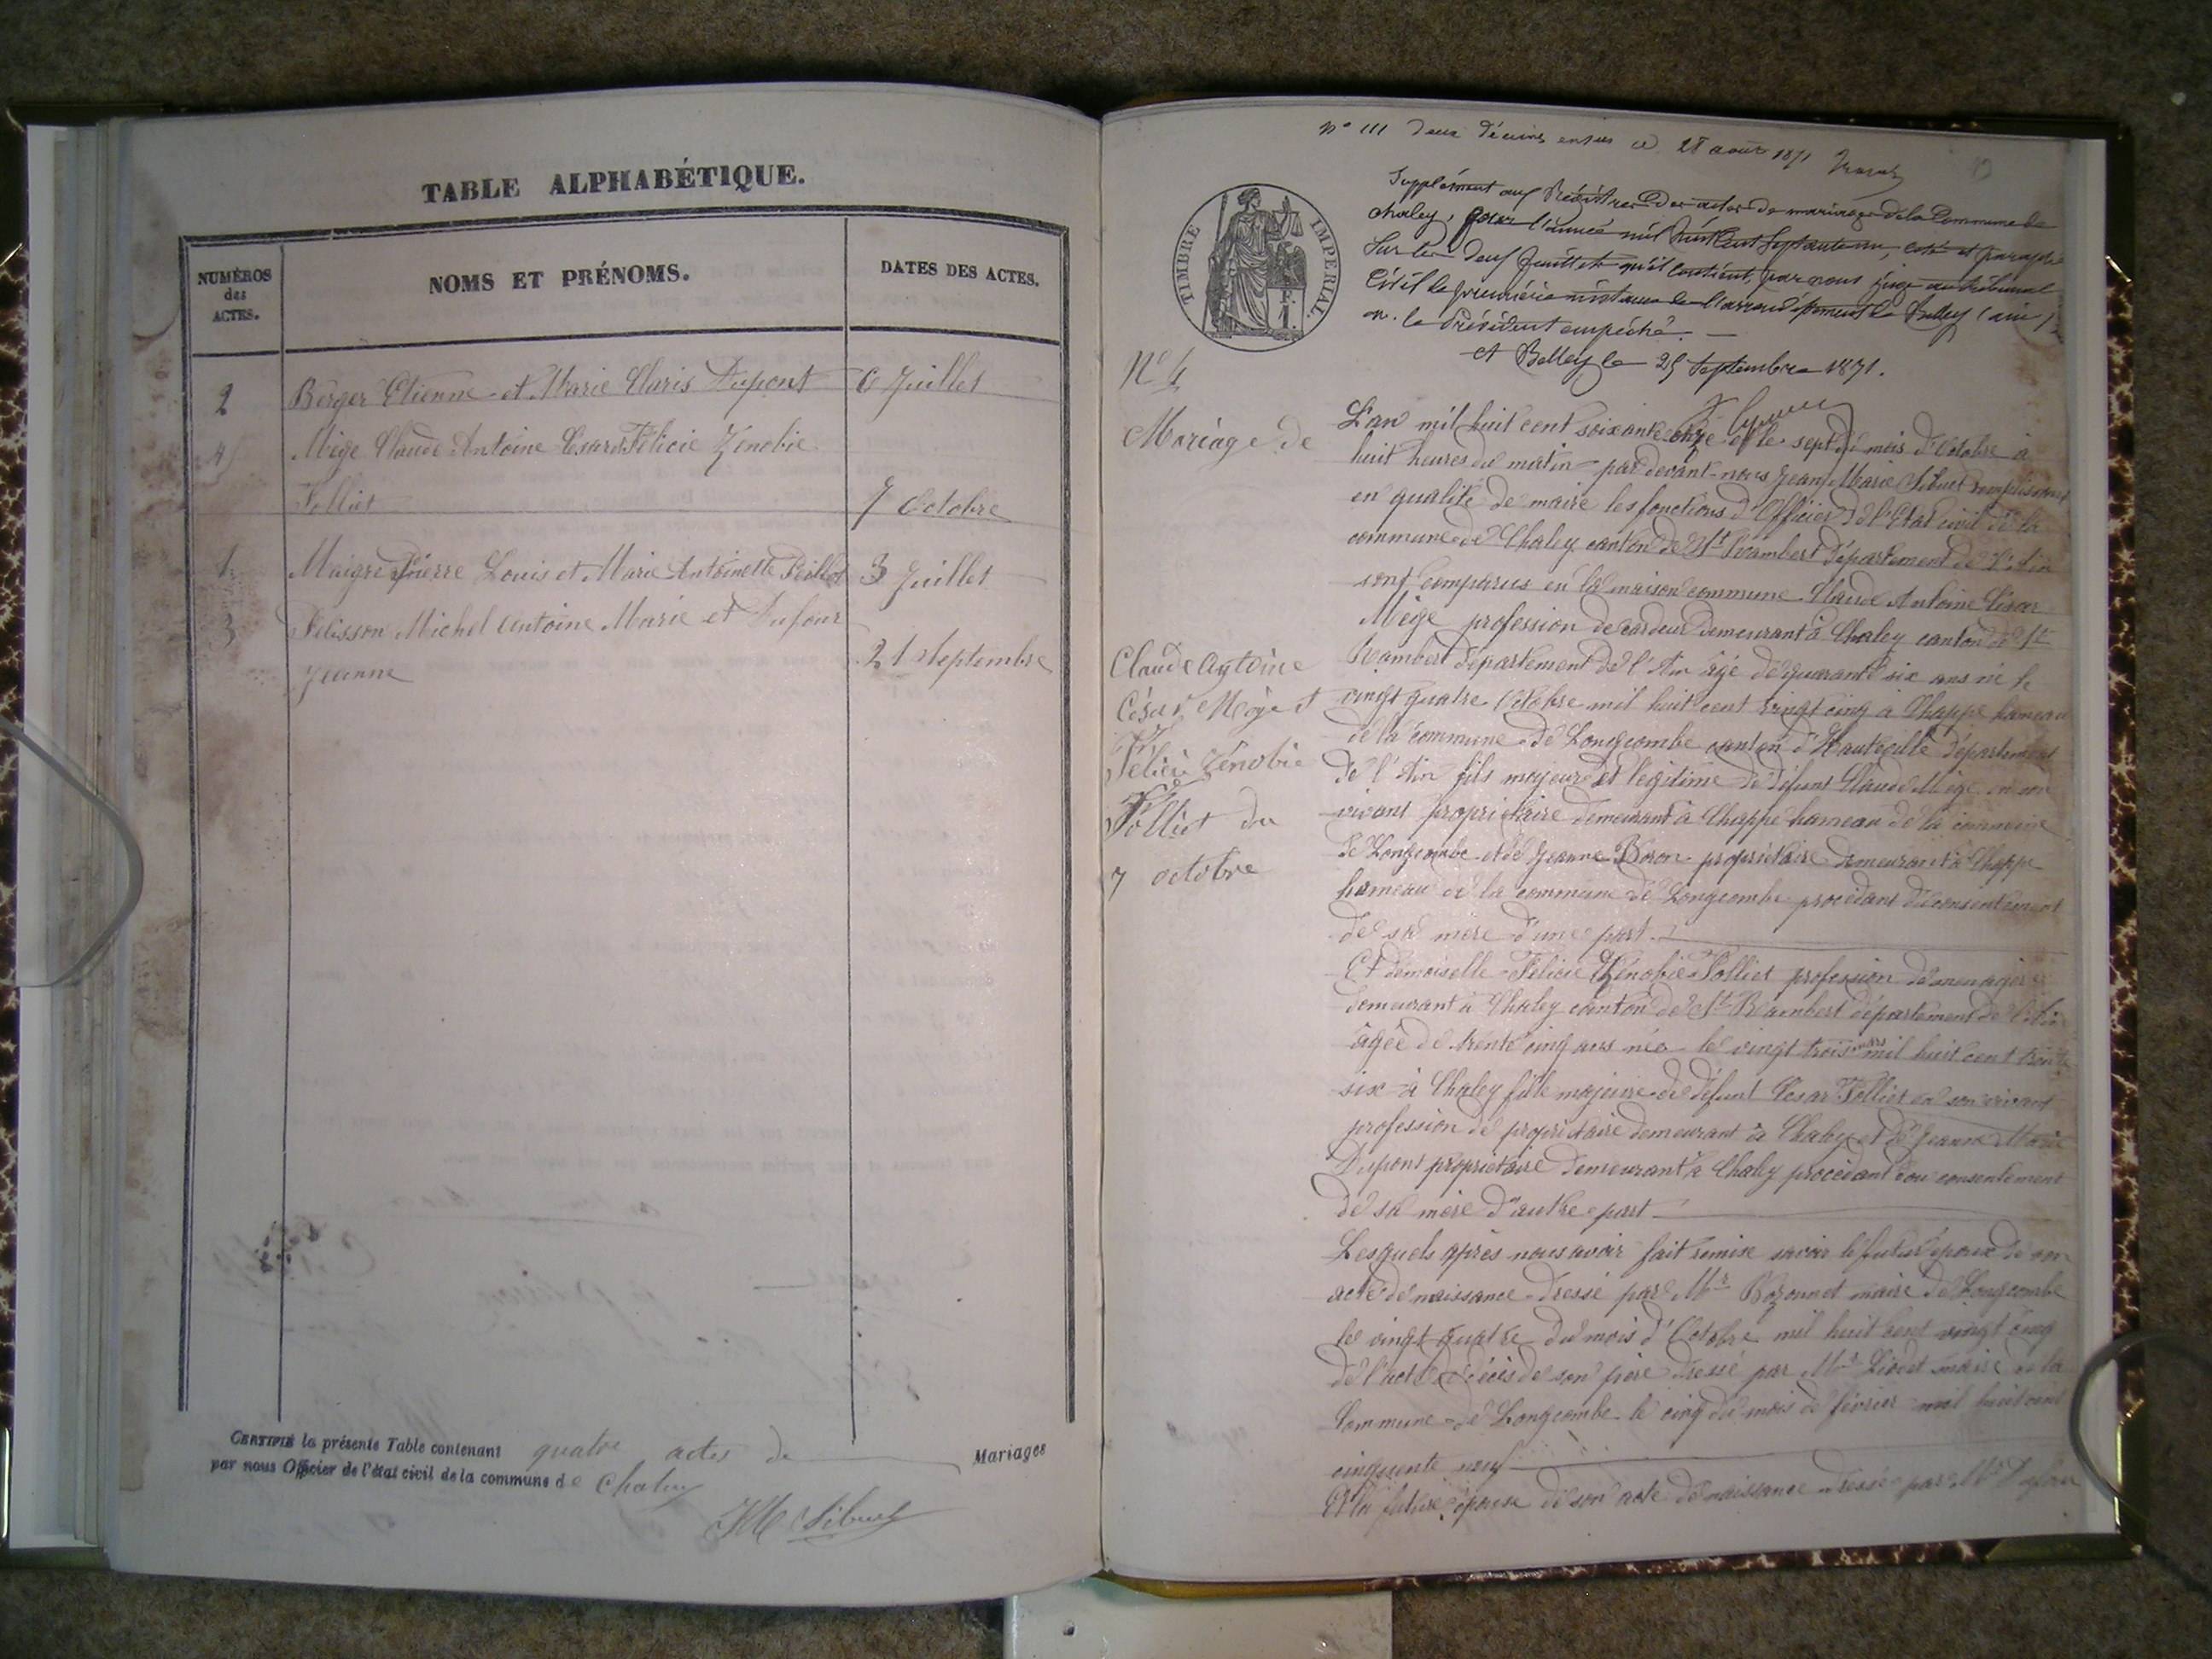 TABLE ALPHABÉTIQUE.
NUMÉROS
des
ACTES.
NOMS ET PRÉNOMS.
DATES DES ACTES.
2 Berger Etienne et Marie Claris Dupont 6 Juillet
4 Mège Claude Antoine César & Félicie Zénobie
Tolliet 7 Octobre
1 Maigre Pierre Louis et Marie Antoinette Peillet 3 Juillet
3 Pelisson Michel Antoine Marie et Dufour
Jeanne 21 Septembre
CERTIFIÉ la présente Table contenant quatre actes de Mariages
par nous Officier de l'état civil de la commune de Chaley
JM Sibuet
N° 111 deux décimes en sus ce 28 aout 1871
TIMBRE IMPERIAL
Supplément aux Registres des actes de mariage de la Commune de
Chaley, pour l'année mil huit cent septante un, coté et paraphé
Sur les deux feuillets qu'il contient, par nous juge au tribunal
Civil de première instance de l'arrondissement de Belley (ain)
M. le Président empêché. —
à Belley le 25 Septembre 1871.
N° 4
Mariage de
Claude Antoine
César Mège et
Félicie Zénobie
Tolliet du
7 octobre
L'an mil huit cent soixante onze et le sept du mois d'Octobre à
huit heures du matin par devant nous Jean Marie Sibuet remplissant
en qualité de maire les fonctions d'Officier de l'Etat civil de la
commune de Chaley canton de St Rambert département de l'Ain
sont comparus en la maison commune Claude Antoine César
Mège profession de cardeur demeurant à Chaley canton de St
Rambert département de l'Ain âgé de quarante six ans né le
vingt quatre Octobre mil huit cent vingt cinq à Chappe hameau
de la commune de Longecombe canton d'Hauteville département
de l'Ain fils majeur et légitime de défunt Claude Mège en son
vivant propriétaire demeurant à Chappe hameau de la commune
de Longecombe et de Jeanne Boron propriétaire demeurant à Chappe
hameau de la commune de Longecombe procédant du consentement
de sa mère d'une part.
Et demoiselle Félicie Zénobie Tolliet profession de menagère
demeurant à Chaley canton de St Rambert département de l'Ain
âgée de trente cinq ans née le vingt trois mars mil huit cent trente
six à Chaley fille majeure de défunt César Tolliet en son vivant
profession de propriétaire demeurant à Chaley et de Jeanne Marie
Dupont propriétaire demeurant à Chaley procédant du consentement
de sa mère d'autre part
Lesquels après nous avoir fait remise savoir le futur époux de son
acte de naissance dressé par Mr Bozonnet maire de Longecombe
le vingt quatre du mois d'Octobre mil huit cent vingt cinq
de l'acte de décès de son père dressé par Mr maire de la
Commune de Longecombe le cinq du mois de février mil huit cent
cinquante neuf
Et la future épouse de son acte de naissance dressé par Mr